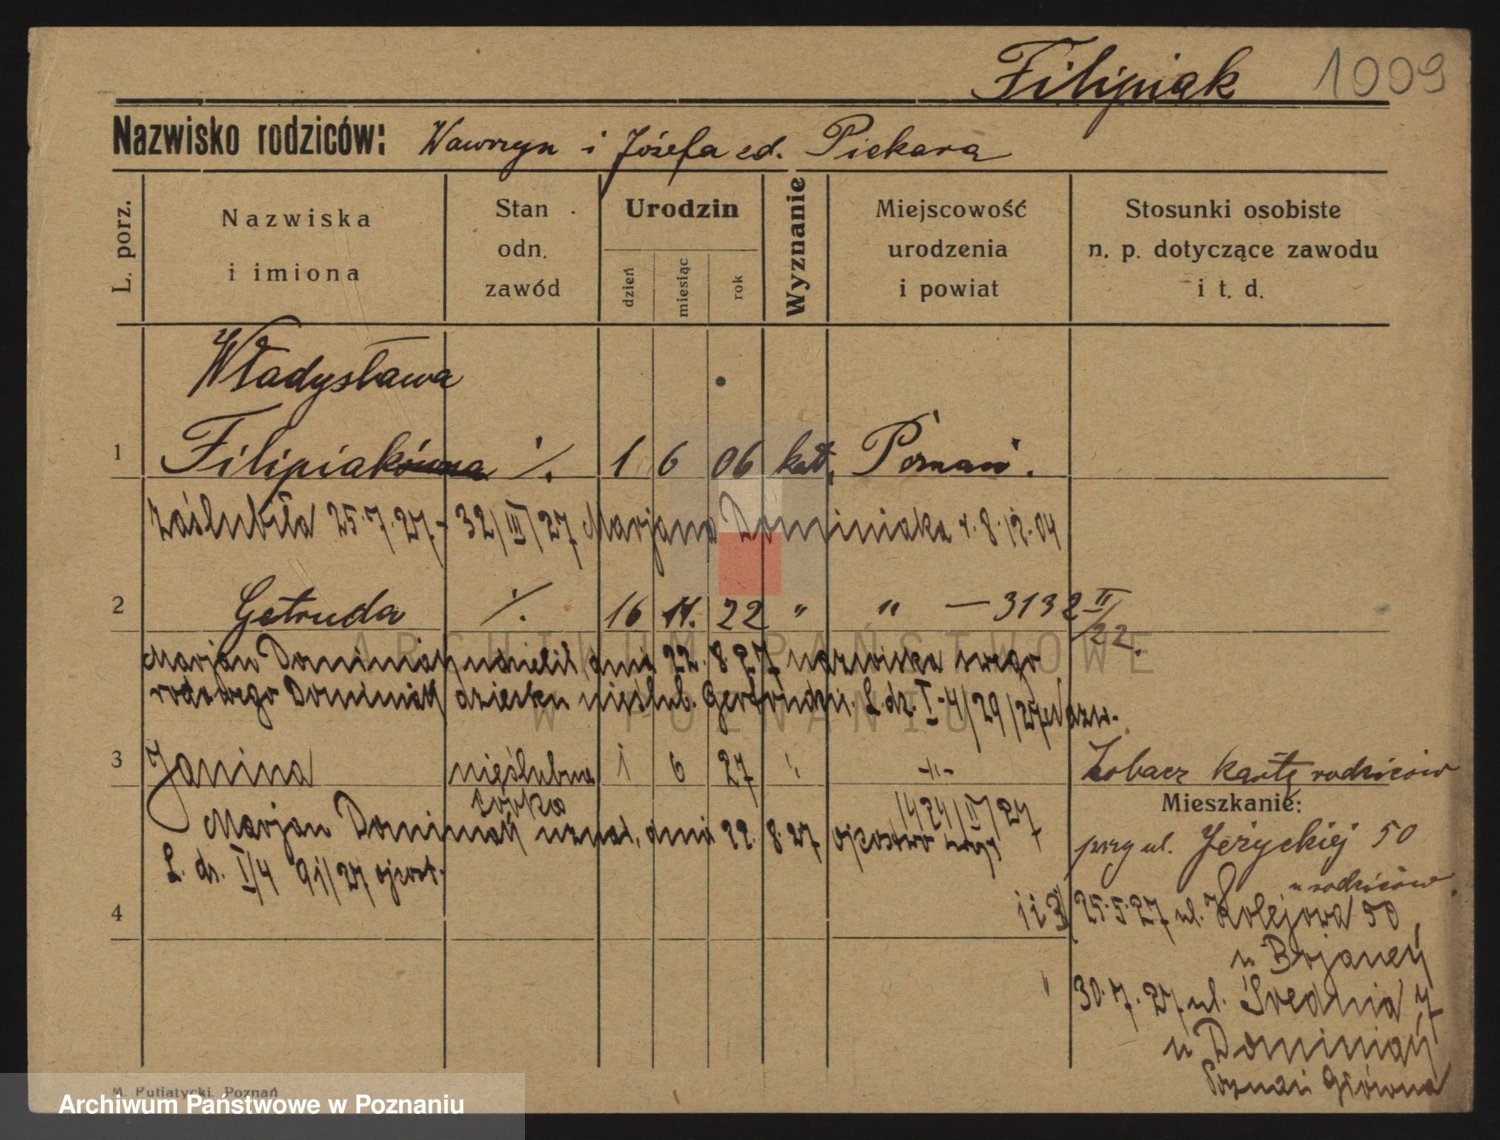 Filipiak 1009
Nazwisko rodziców: Wawrzyn i Józefa zd. Piekara
L. porz.
Nazwiska i imiona
Stan odn. zawód
Urodzin
dzień miesiąc rok
Wyznanie
Miejscowość urodzenia i powiat
Stosunki osobiste n. p. dotyczące zawodu i t. d.
Władysława
1 Filipiakówna ·/. 1 6 06 kat. Poznań.
zaślubiła 25.7.27 - 32/III/27 Marjana Dominiaka r. 8.12.04
2 Getruda ·/. 16 11. 22 " " — 3132 II/22.
Marjan Dominiak udzielił dnia 22.8 27 nazwiska swego
rodowego Dominiak dziecku nieślub. Gertrudzie. L. dz. I-4/29/27 Nazw.
3 Janina nieślubna córka 1 6 27 " -"- Zobacz kartę rodziców
1424/II/27
Mieszkanie:
Marjan Dominiak uznał dnia 22.8.27 ojcostwo
przy ul. Jeżyckiej 50
L. dz. I/4 91/27 ojcost.
u rodziców.
4
1 i 3) 25.5.27 ul. Kolejowa 50
u Bojanek
" 30.7.27 ul. Średnia 7
u Dominiak
Poznań Główna
ARCHIWUM PAŃSTWOWE
W POZNANIU
M. Putiatycki, Poznań
Archiwum Państwowe w Poznaniu